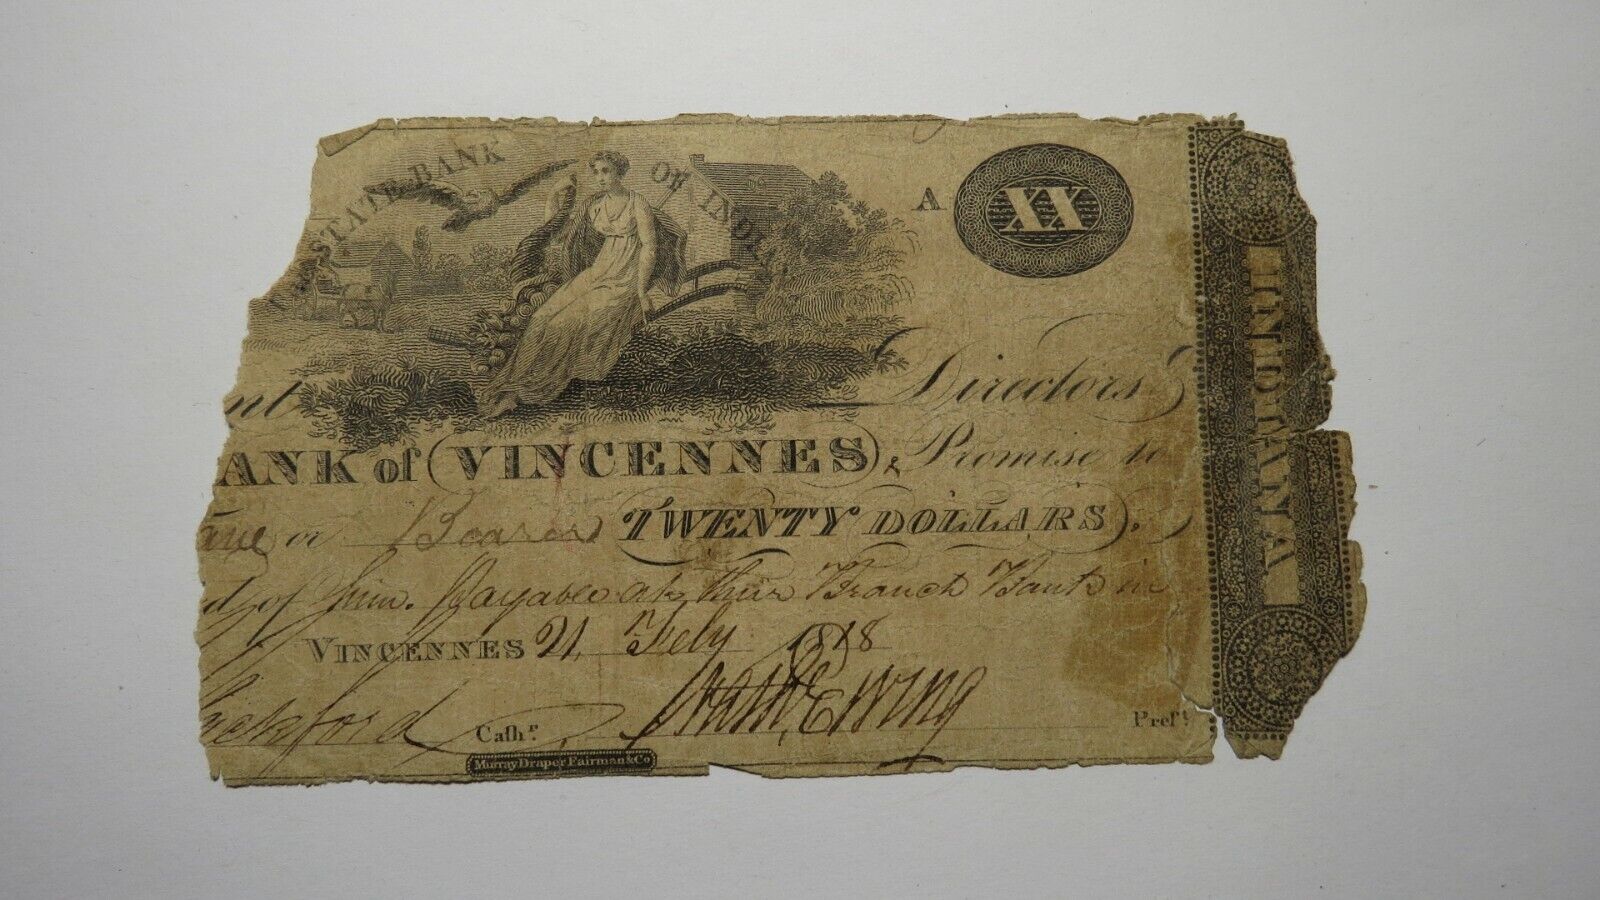 STATE BANK OF INDI
A XX
nt Directors
ANK of VINCENNES, Promise to
or Bearer TWENTY DOLLARS.
d, of Payable at their Branch Bank in
VINCENNES 21 Feby 1818
Cashr. Nath. Ewing Prest.
Murray Draper Fairman & Co
INDIANA